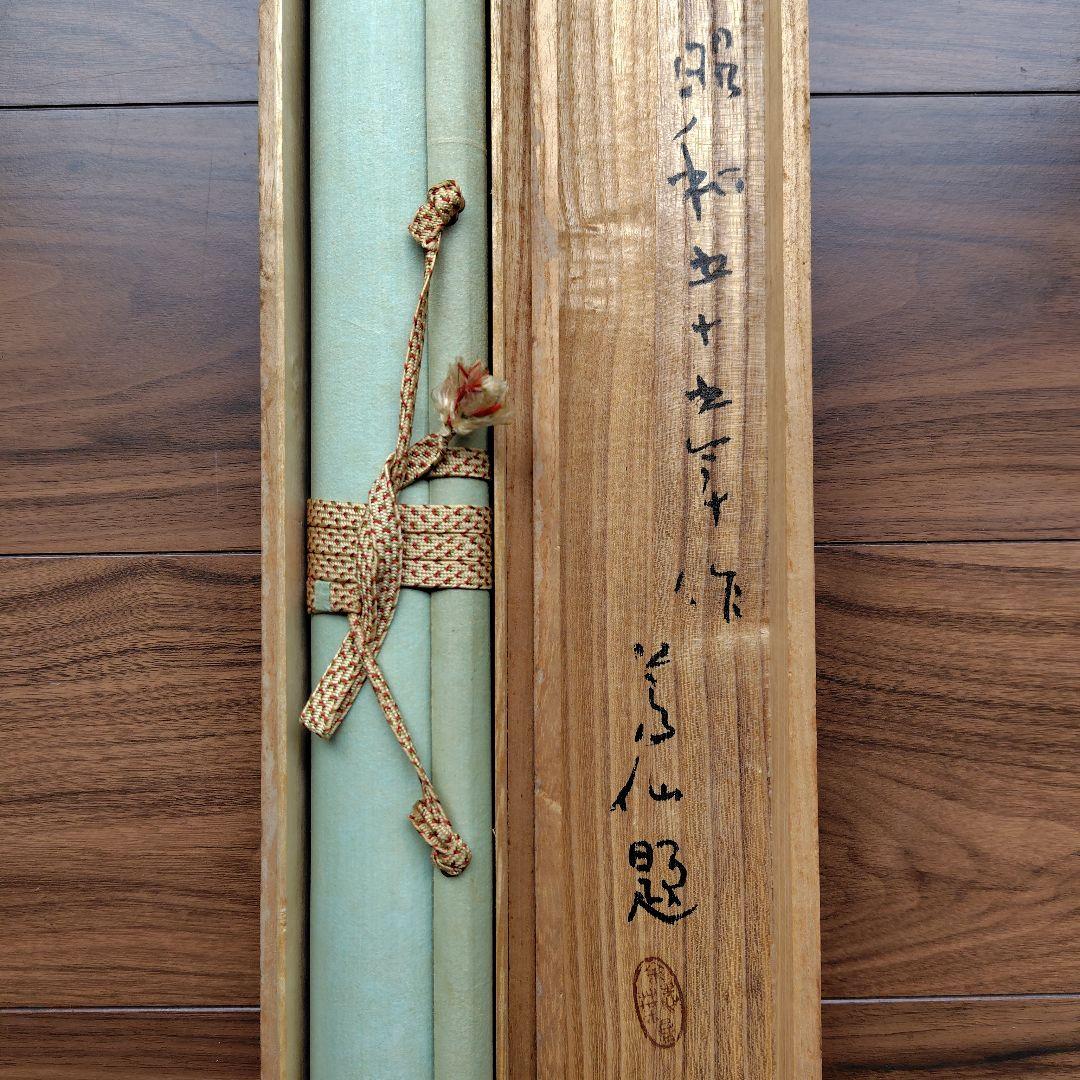 昭和五十五年作
蒼仙題